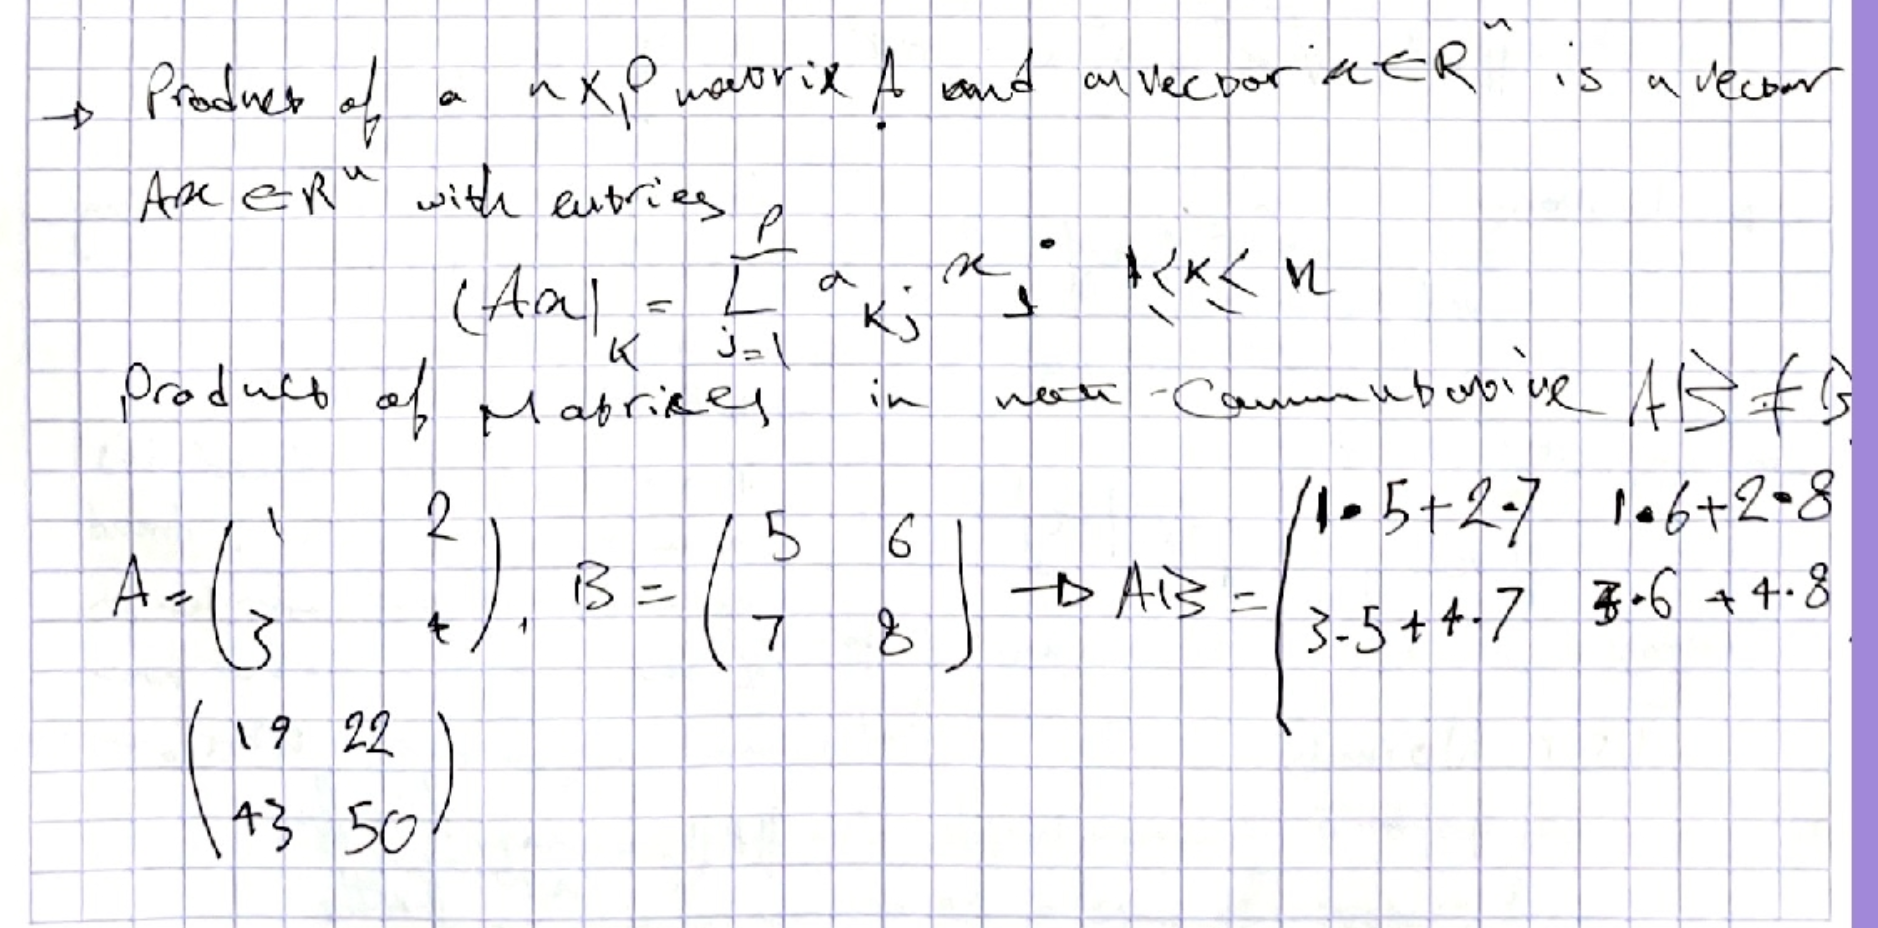 → Product of a n×p matrix A and a vector x ∈ R^n is a vector
Ax ∈ R^n with entries
(Ax)_K = ∑_{j=1}^{P} a_{Kj} x_j 1 ≤ K ≤ n
Product of Matrices in non-Commutative AB ≠ B
A = ( 1 2 ; 3 4 ), B = ( 5 6 ; 7 8 ) → AB = ( 1•5+2•7 1•6+2•8 ; 3•5+4•7 3•6+4•8
( 19 22 ; 43 50 )